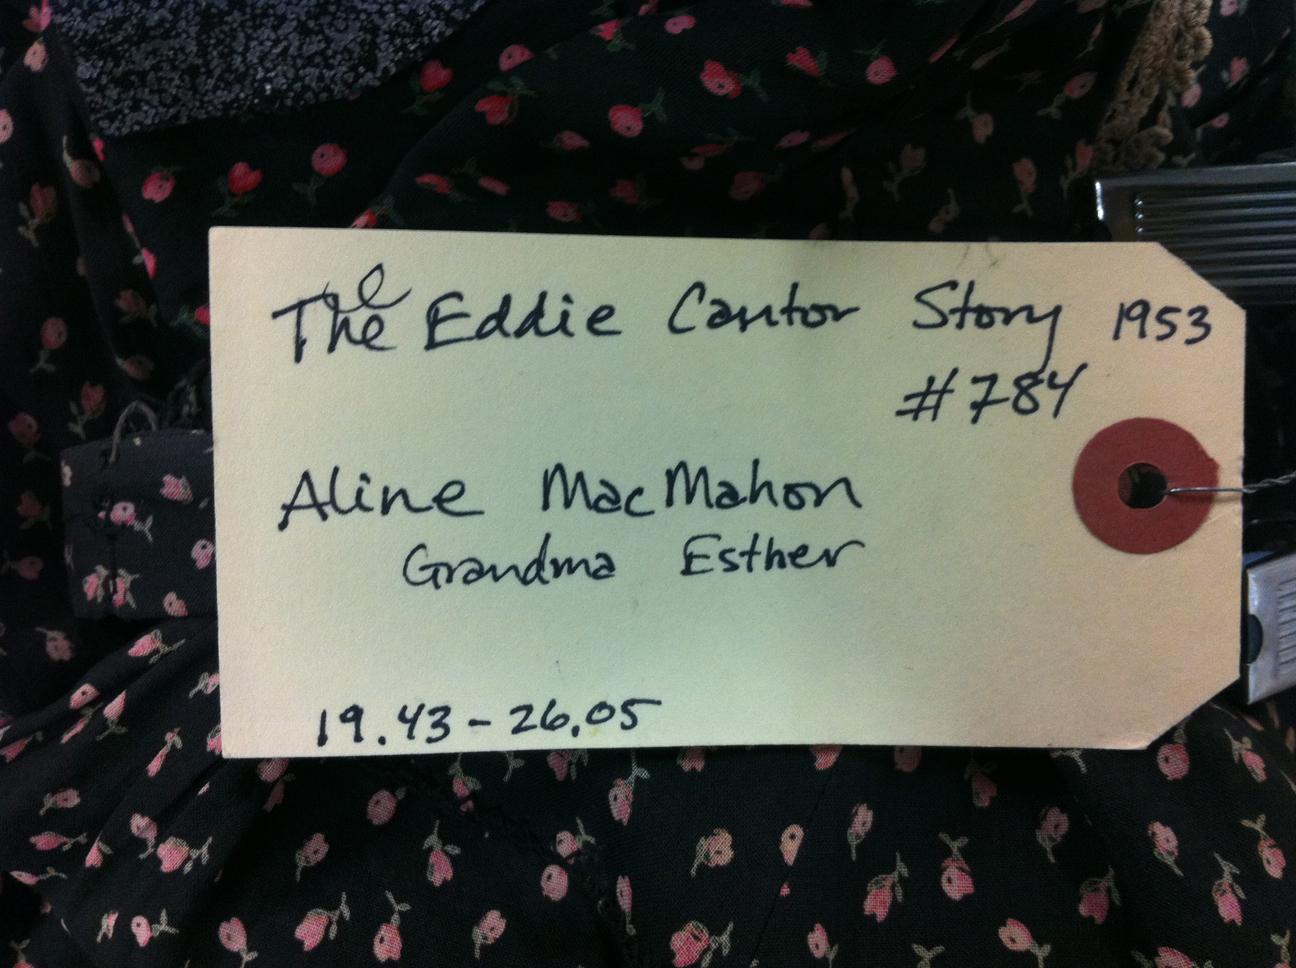 The Eddie Cantor Story 1953
#784
Aline MacMahon
Grandma Esther
19.43-26.05